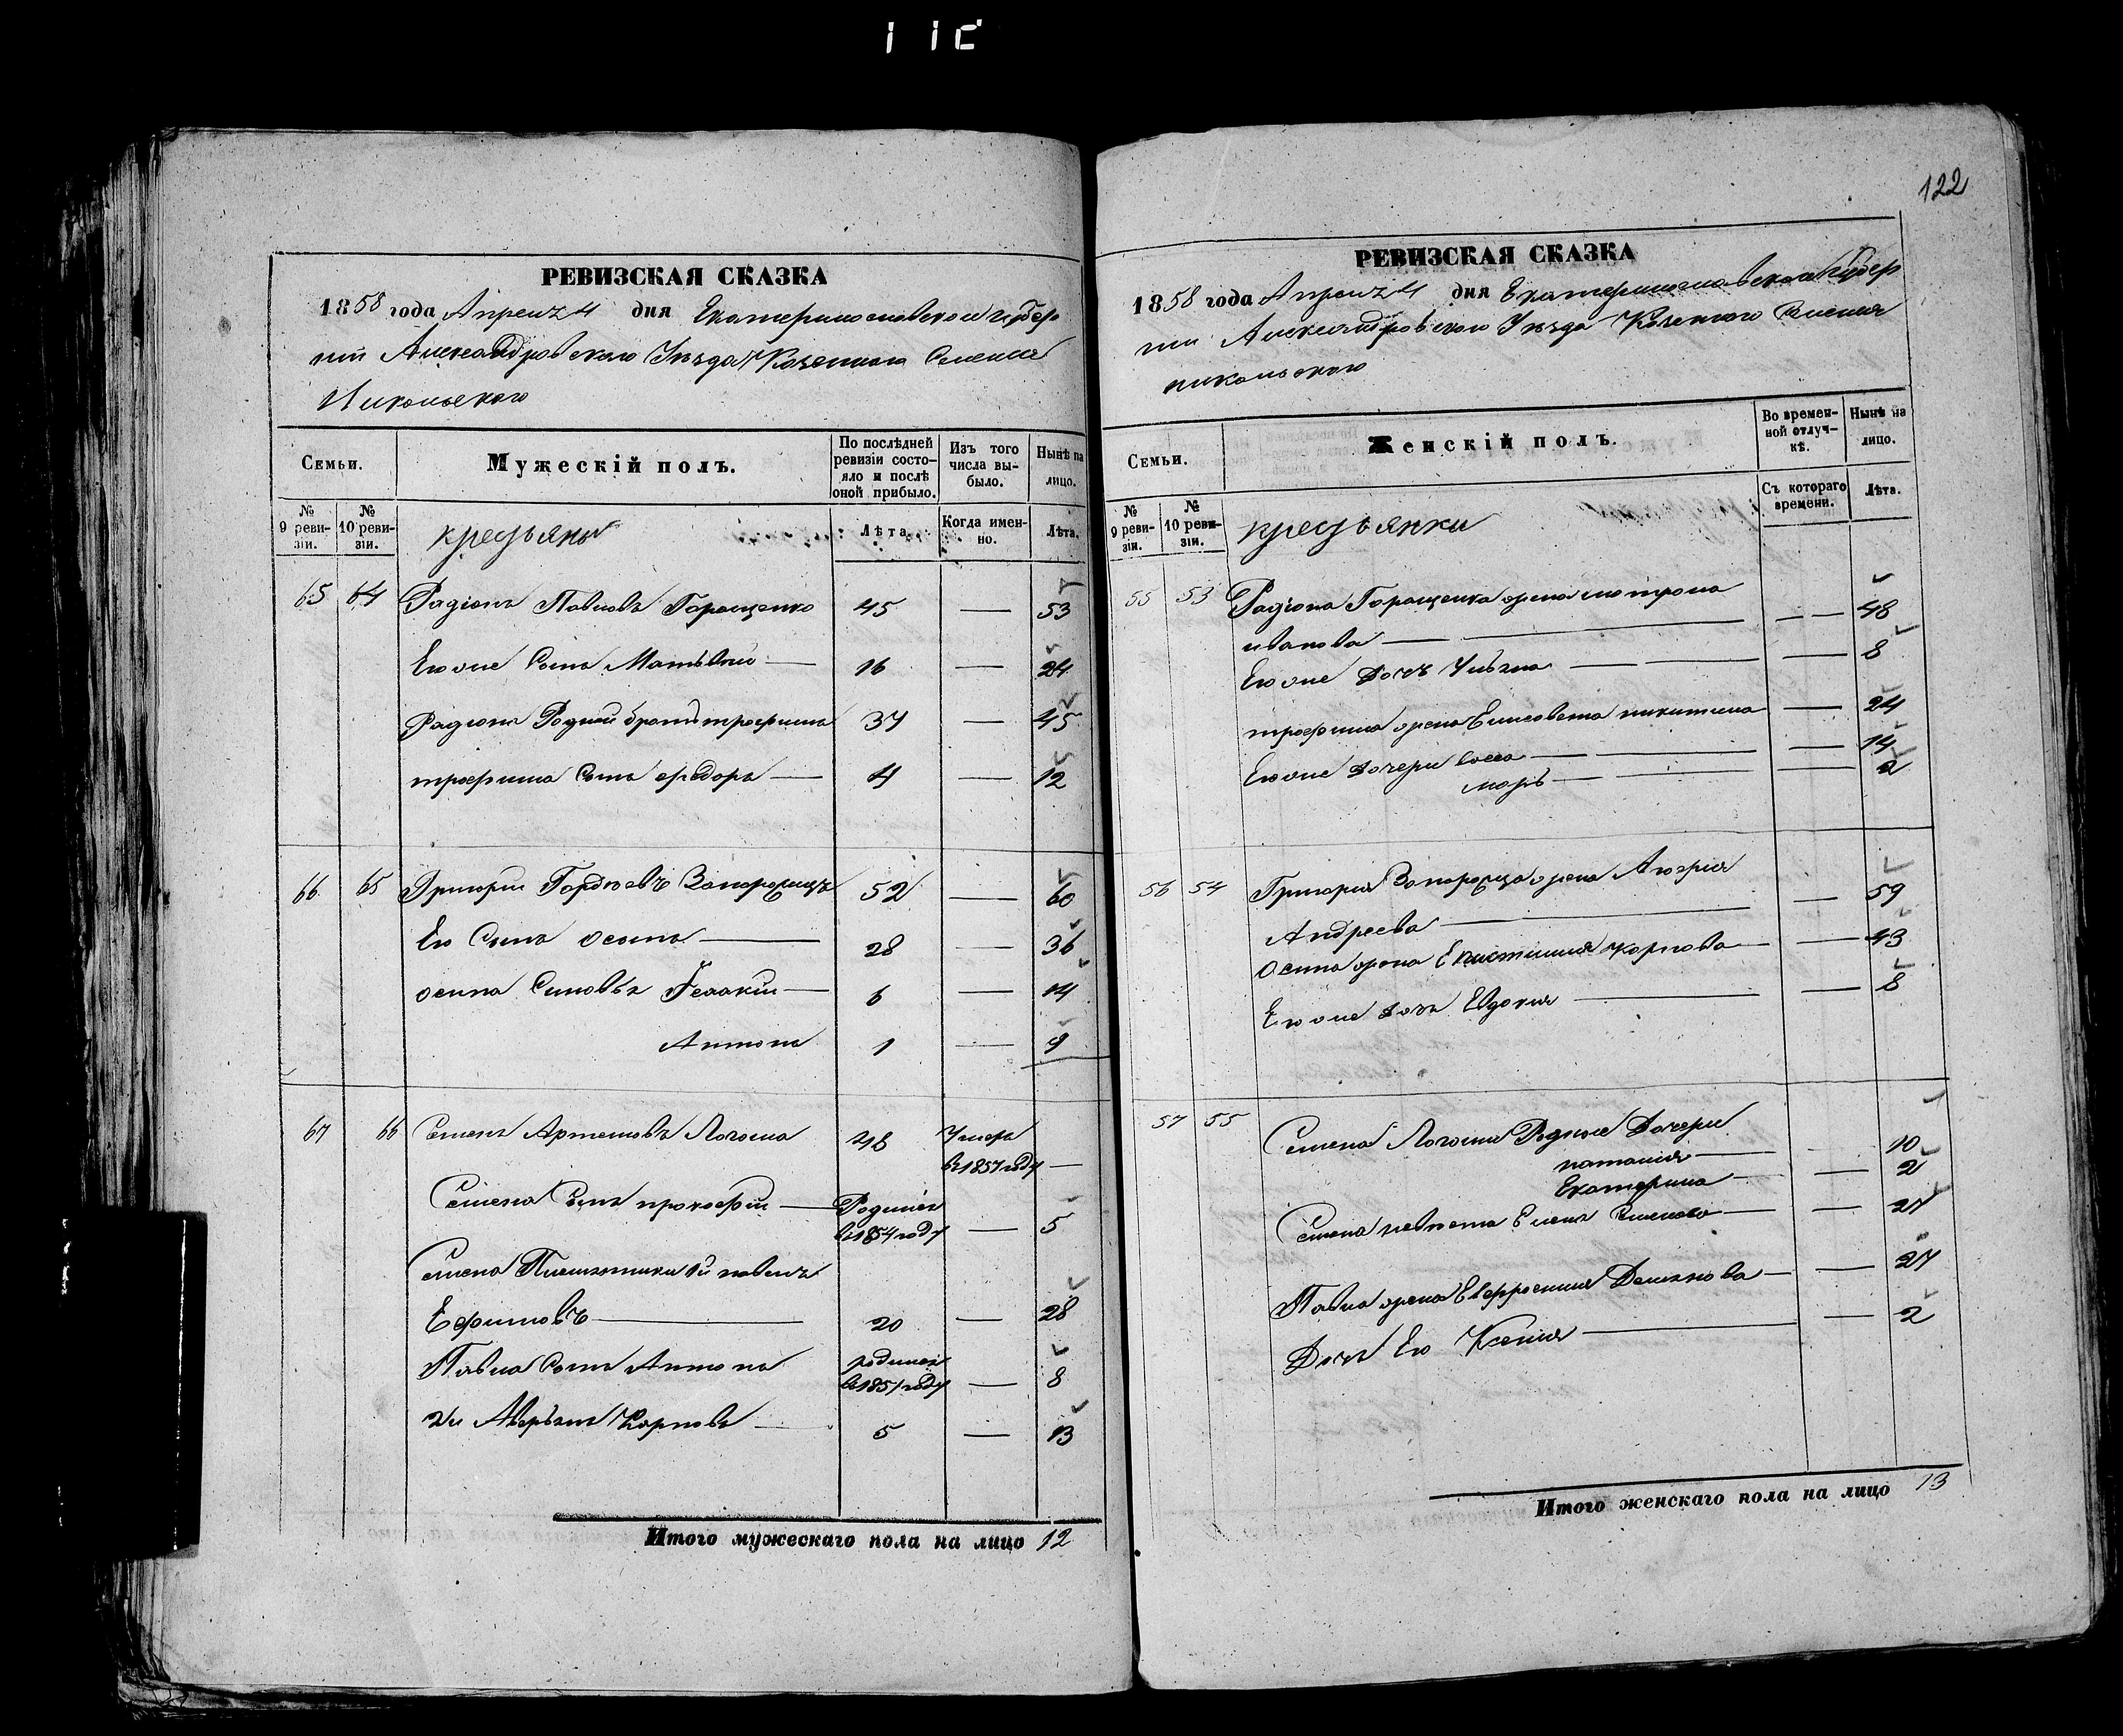 122
РЕВИЗСКАЯ СКАЗКА
1858 года Апреля 4 дня Екатеринославской губер
нии Александровского Уезда Казенного Селения
Никольского
Семьи.
Мужескій полъ.
По послѣдней ревизіи состо-яло и послѣ оной прибыло.
Изъ того числа вы-было.
Нынѣ на лицо.
№ 9 реви-зіи.
№ 10 реви-зіи.
Лѣта.
Когда имен-но.
Лѣта.
65 64 Радіонъ Павловъ Геращенко 45 — 53
Его же Сынъ Матвѣй — 16 — 24
Радіона Родной братъ трофимъ 37 — 45
трофима Сынъ федоръ — 4 — 12
66 65 Григорій Гордѣевъ Запорожецъ 52 — 60
Его Сынъ Осипъ — 28 — 36
осипа Синовья — 6 — 14
Антонъ 1 — 9
67 66 Семенъ Артемовъ Логоша 48 Умеръ
въ 1857 году —
Семена Сынъ прокофій — Родился
въ 1854 году — 5
Семена Племянники 1й павелъ
Ефимовъ — 20 — 28
Павла Сынъ Антонъ родился
въ 1851 году — 8
2й Аверьянъ Карповъ — 5 — 13
Итого мужескаго пола на лицо 12
РЕВИЗСКАЯ СКАЗКА
1858 года Апреля 4 дня Екатеринославской Губер
нии Александровского Уезда Казенного Селения
никольского
Семьи.
Женскій полъ.
Во времен-ной отлуч-кѣ.
Нынѣ на лицо.
№ 9 реви-зіи.
№ 10 реви-зіи.
Съ котораго времени.
Лѣта.
55 53 Радіона Геращенка жена мотрона
иванова — — 48
Его же Дочь Ульяна — — 8
трофима жена Елисовета никитина — 24
Его же дочери — — 14
— — 2
56 54 Григорія Запорожца жена
Андреева — — 59
Осипа жена Карпова — — 43
Его же дочь Евдокия — — 8
57 55 Семена Логоши Родные Дочери
наталия — 10
Екатерина — — 2
Семена невѣста Елена Семенова — — 27
Павла жена Евфросиния Демянова — — 27
Дочь Его Ксения — — 2
Итого женскаго пола на лицо 13